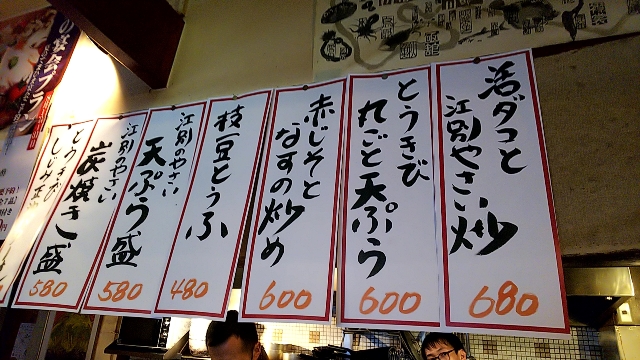 活ダコと
江別やさい炒
680
とうきび
丸ごと天ぷら
600
赤じそと
なすの炒め
600
枝豆とうふ
480
江別のやさい
天ぷら盛
580
江別のやさい
炭焼き盛
580
とうきび
580
の宴会プラ